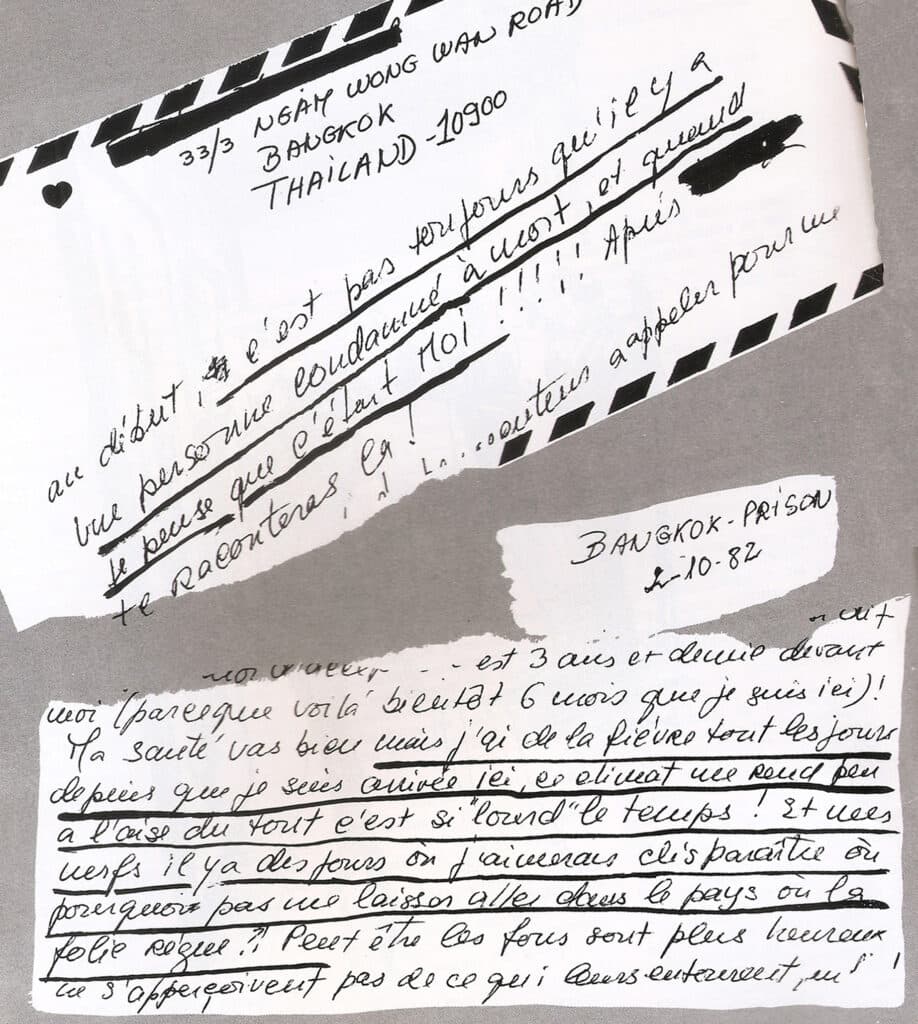 33/3 NGAM WONG WAN ROAD
BANGKOK
THAILAND-10900
au début, c'est pas toujours qu'il y a
une personne condamné à mort, et quand
je pense que c'était MOI !!!!!! Après
te raconteras ça ! appeler pour me
BANGKOK-PRISON
2-10-82
est 3 ans et demie devant
moi (parceque voilà bientôt 6 mois que je suis ici)!
Ma santé vas bien mais j'ai de la fièvre tout les jours
depuis que je suis arrivée ici, ce climat me rend peu
a l'aise du tout c'est si "lourd" le temps ! Et mes
nerfs il y a des jours où j'aimerais disparaître ou
pourquoi pas me laisser aller dans le pays où la
folie règne ?! Peut être les fous sont plus heureux
ne s'apperçoivent pas de ce qui leurs entourent,